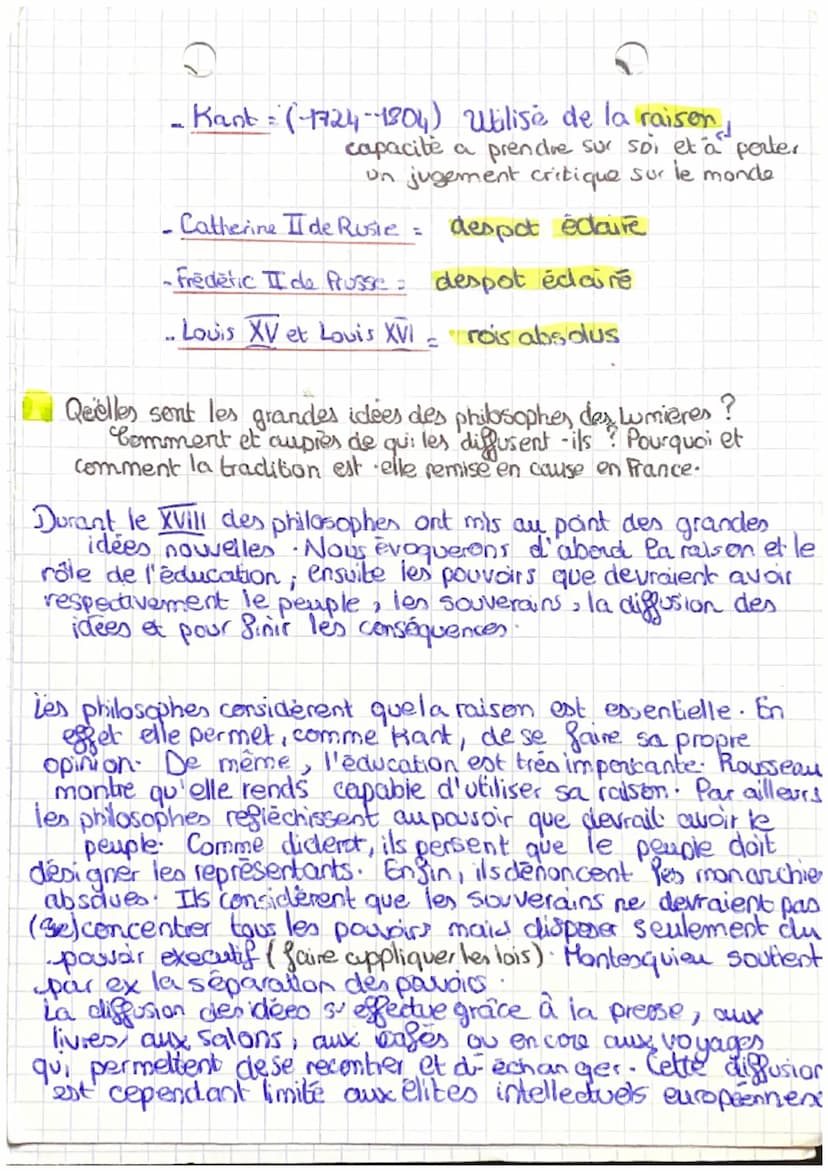 - Kant = (-1724--1804) Utilise de la raison,
capacité a prendre sur soi et à porter
un jugement critique sur le monde
- Catherine II de Rusie = despot éclairé
- Frédéric II de Prusse = despot éclairé
- Louis XV et Louis XVI = rois absolus
Quelles sont les grandes idées des philosophes des Lumières ?
Comment et auprès de qui les diffusent-ils ? Pourquoi et
comment la tradition est-elle remise en cause en France.
Durant le XVIII des philosophes ont mis au point des grandes
idées nouvelles. Nous évoquerons d'abord la raison et le
rôle de l'éducation, ensuite les pouvoirs que devraient avoir
respectivement le peuple, les souverains, la diffusion des
idées et pour finir les conséquences.
Les philosophes considèrent que la raison est essentielle. En
effet elle permet, comme Kant, de se faire sa propre
opinion. De même, l'éducation est très importante. Rousseau
montre qu'elle rends capable d'utiliser sa raison. Par ailleurs
les philosophes refléchissent au pouvoir que devrait avoir le
peuple. Comme diderot, ils pensent que le peuple doit
désigner les représentants. Enfin, ils dénoncent les monarchies
absolues. Ils considèrent que les souverains ne devraient pas
(se) concentrer tous les pouvoirs mais disposer seulement du
pouvoir executif (faire appliquer les lois). Montesquieu soutient
par ex la séparation des pouvoirs.
La diffusion des idées s'effectue grâce à la presse, aux
livres, aux salons, aux cafés ou encore aux voyages
qui permettent de se recontrer et d'échanger. Cette diffusion
est cependant limité aux élites intellectuels européennes